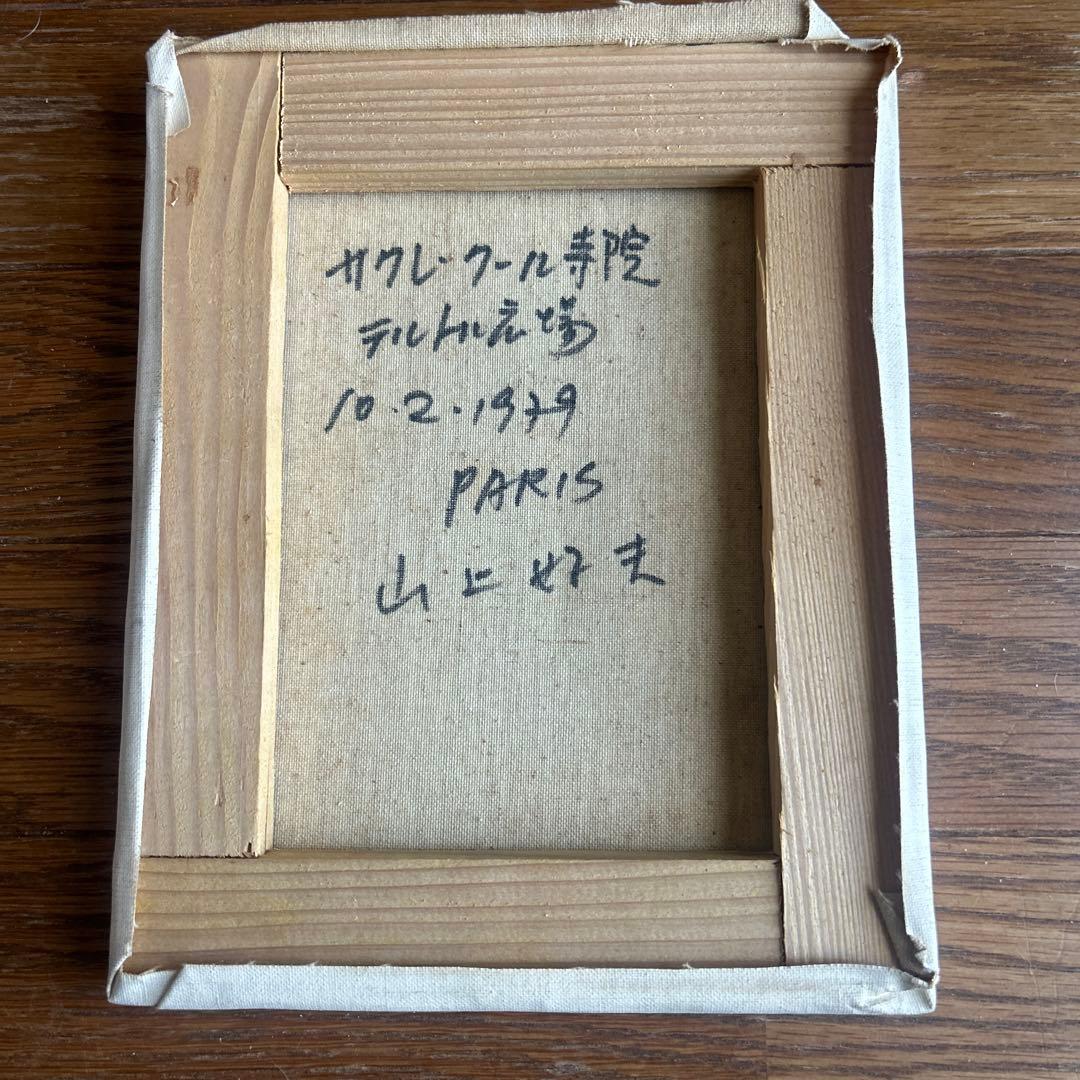 サクレ・クール寺院
テルトル広場
10.2.1979
PARIS
山上好夫